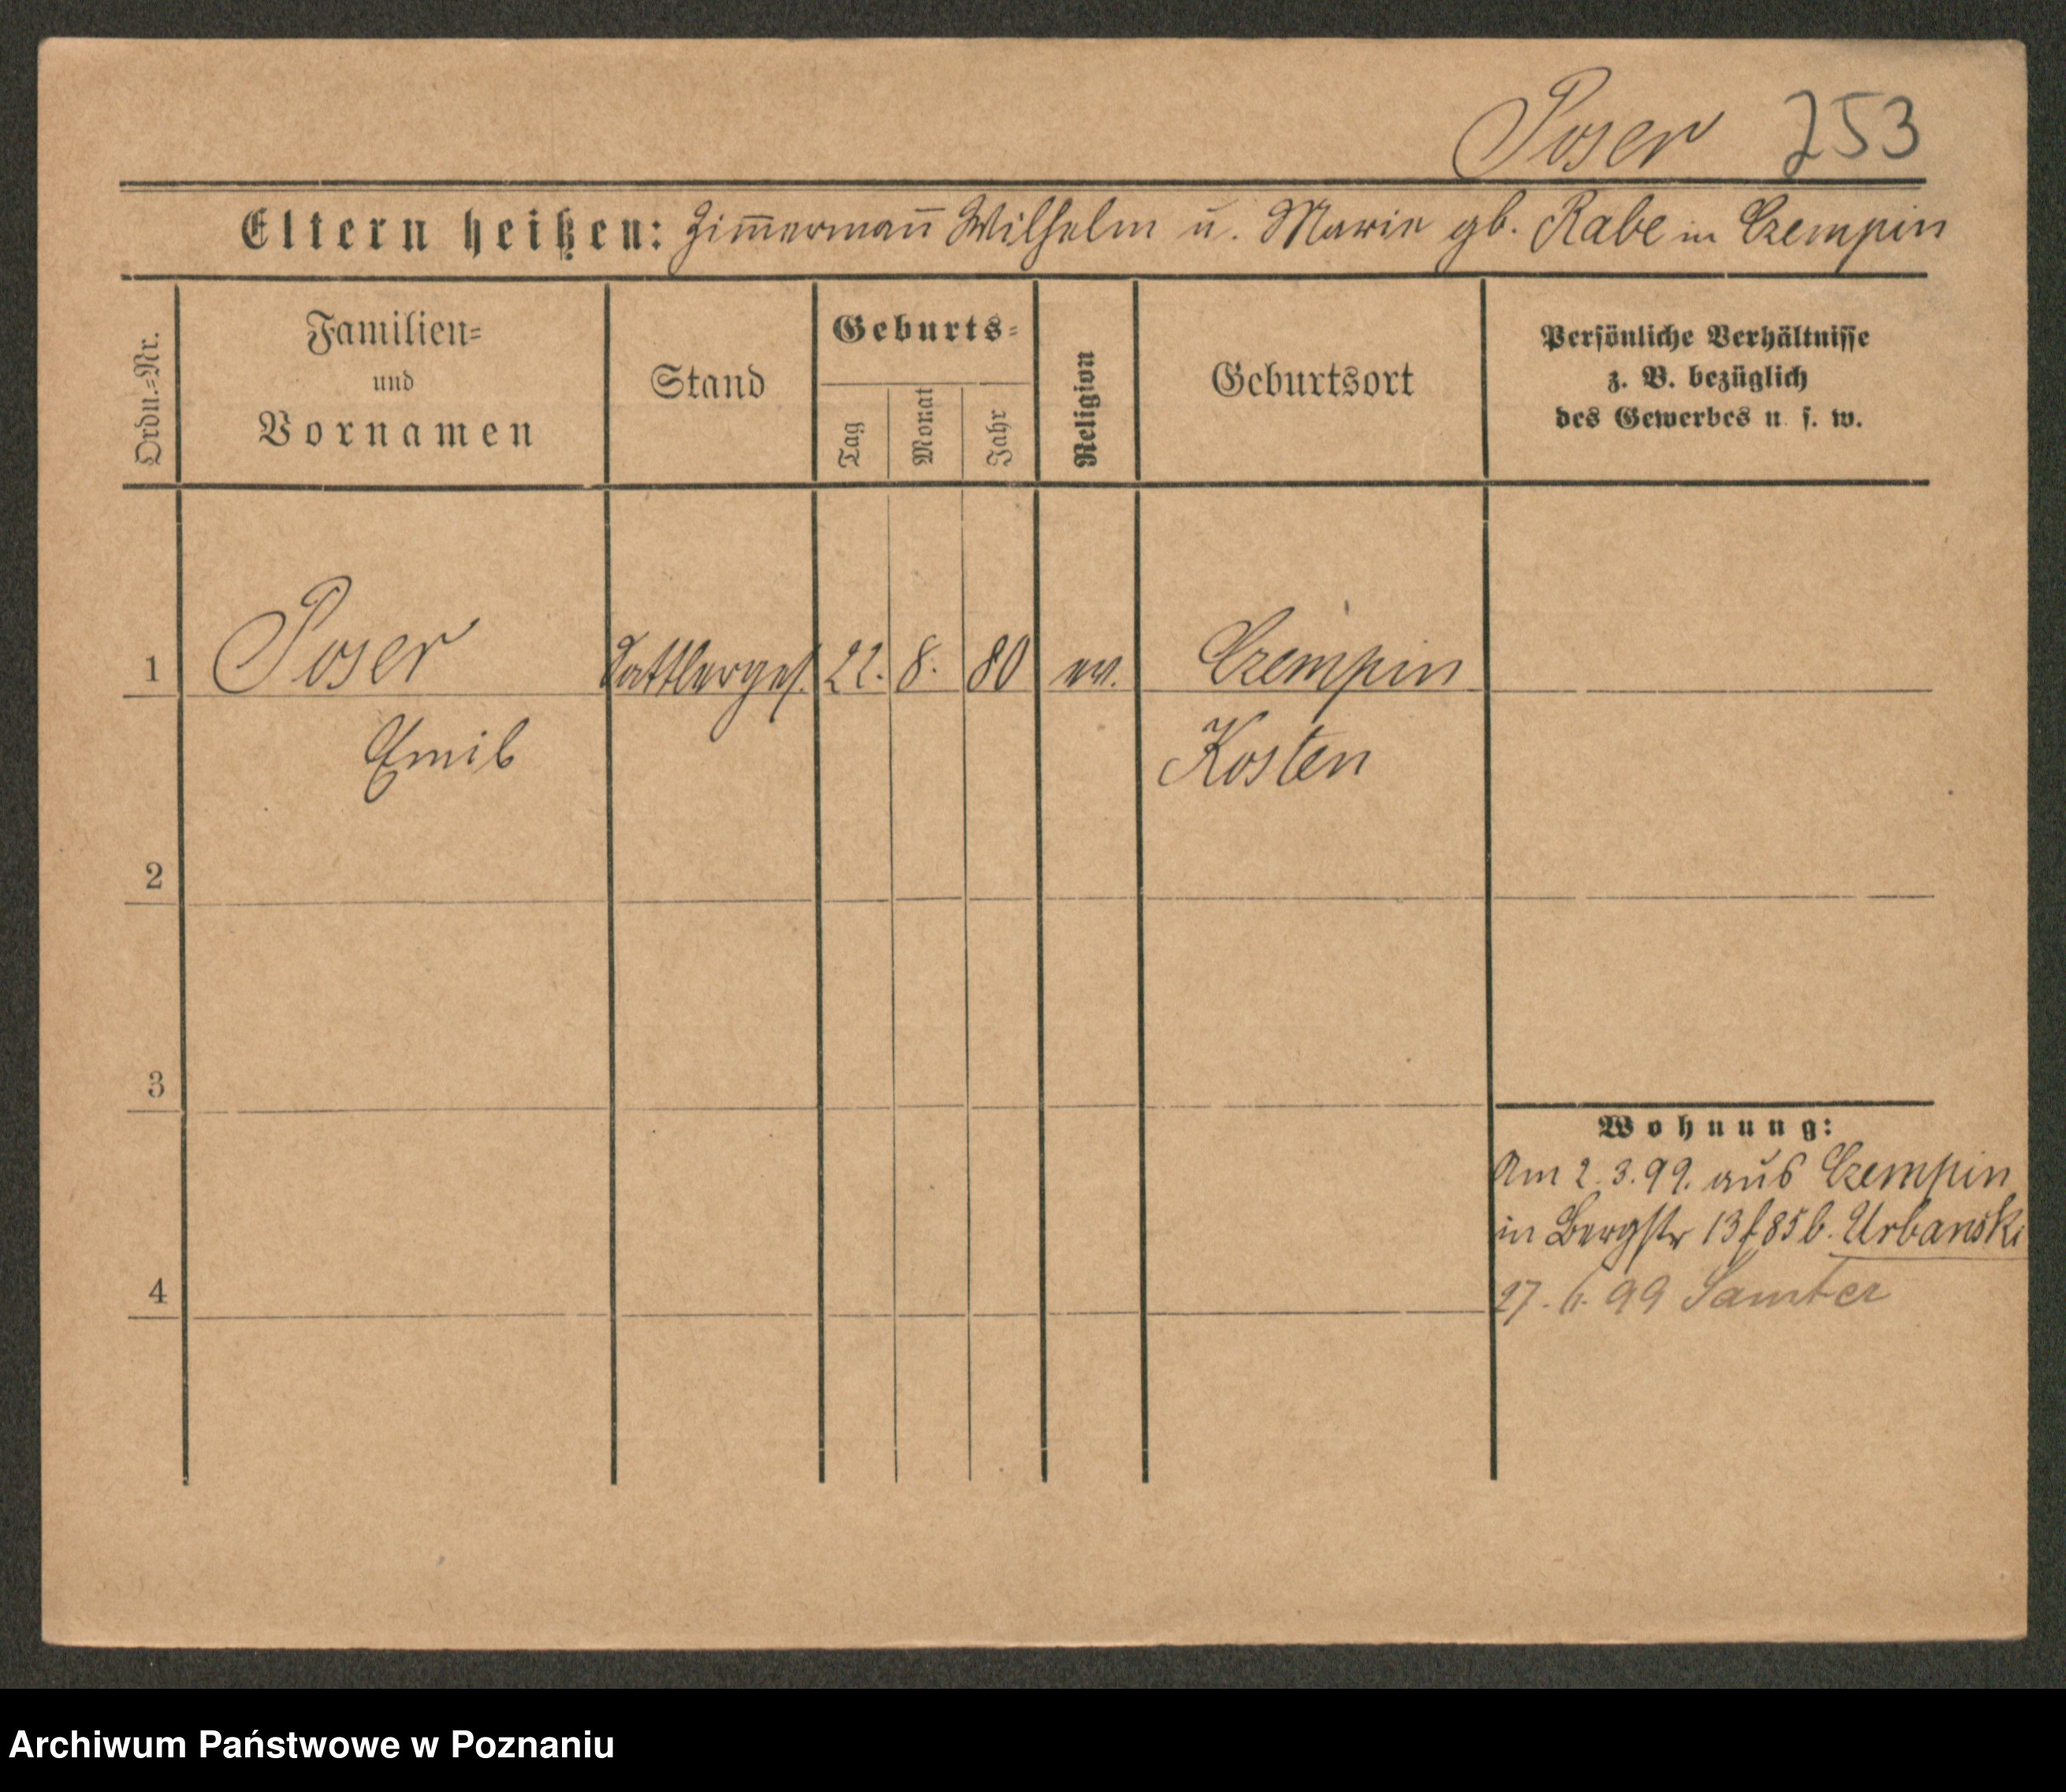 Poser 253
Eltern heißen: Zim̅erman̅ Wilhelm u. Marie gb. Rabe in Czempin
Ordn.=Nr.
Familien=
und
Vornamen
Stand
Geburts=
Tag
Monat
Jahr
Religion
Geburtsort
Persönliche Verhältnisse
z. B. bezüglich
des Gewerbes u. s. w.
1 Poser Sattlerges. 22. 8. 80 ev. Czempin
Emil Kosten
2
3
Wohnung:
Am 2.3.99. aus Czempin
in Bergstr 13 f. 85 b. Urbanski
4
27. 6. 99 Samter
Archiwum Państwowe w Poznaniu